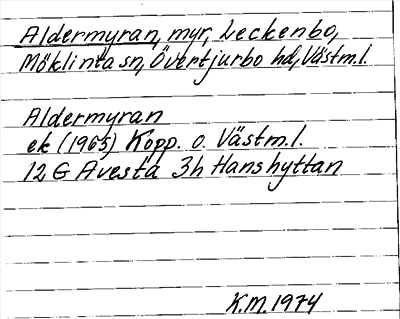 Aldermyran, myr, Leckenbo,
Möklinta sn, Övertjurbo hd, Västm.l.
Aldermyran
ek (1965) Kopp. o. Västm.l.
12 G Avesta 3h Hanshyttan
K.M. 1974